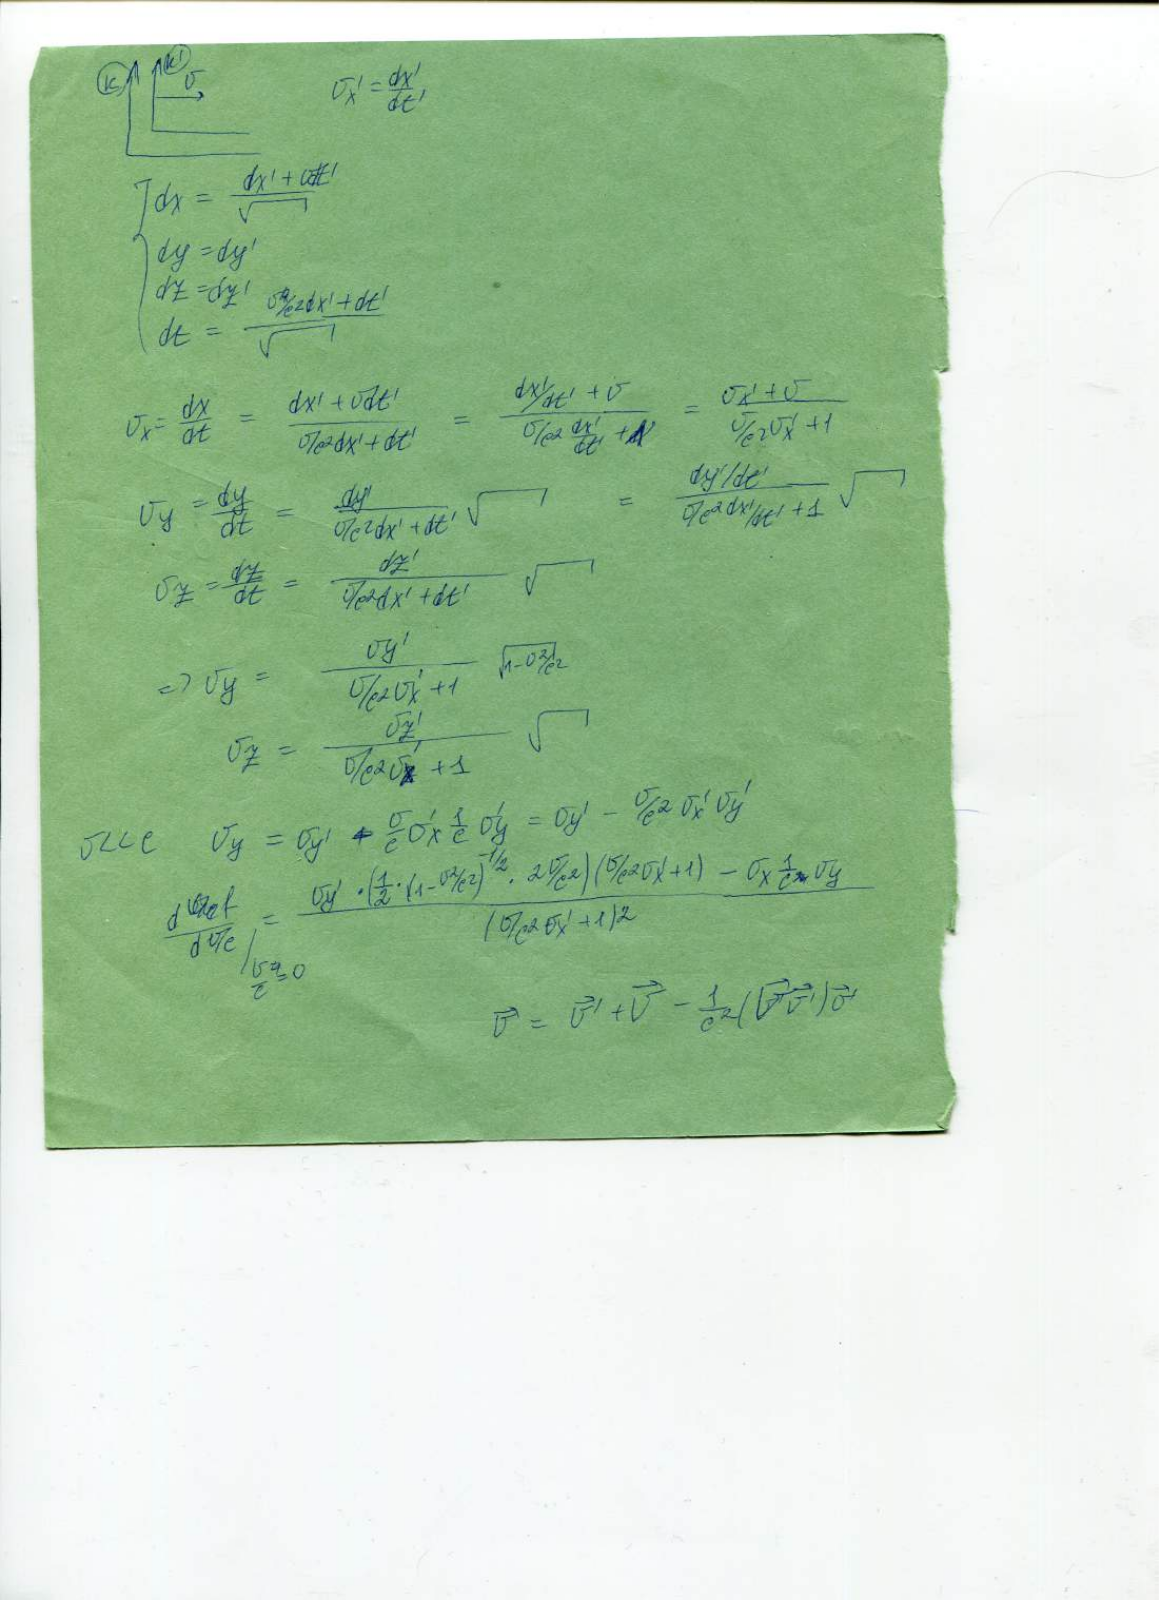 K K' v v_x' = dx'/dt'
dx = (dx' + vdt')/√
dy = dy'
dz = dz'
dt = (v/c² dx' + dt')/√
v_x = dx/dt = (dx' + vdt')/(v/c² dx' + dt') = (dx'/dt' + v)/(v/c² dx'/dt' + 1) = (v_x' + v)/(v/c² v_x' + 1)
v_y = dy/dt = dy'/(v/c² dx' + dt') √ = (dy'/dt')/(v/c² dx'/dt' + 1) √
v_z = dz/dt = dz'/(v/c² dx' + dt') √
=> v_y = v_y'/(v/c² v_x' + 1) √(1 - v²/c²)
v_z = v_z'/(v/c² v_x' + 1) √
v << c v_y = v_y' - v/c v_x' 1/c v_y' = v_y' - v/c² v_x' v_y'
= (v_y' · (1/2 · (1 - v²/c²)^(-1/2) · 2v/c²)(v/c² v_x' + 1) - v_x 1/c v_y)/(v/c² v_x' + 1)²
v/c = 0
v⃗ = v⃗' + V⃗ - 1/c² (V⃗ v⃗') v⃗'